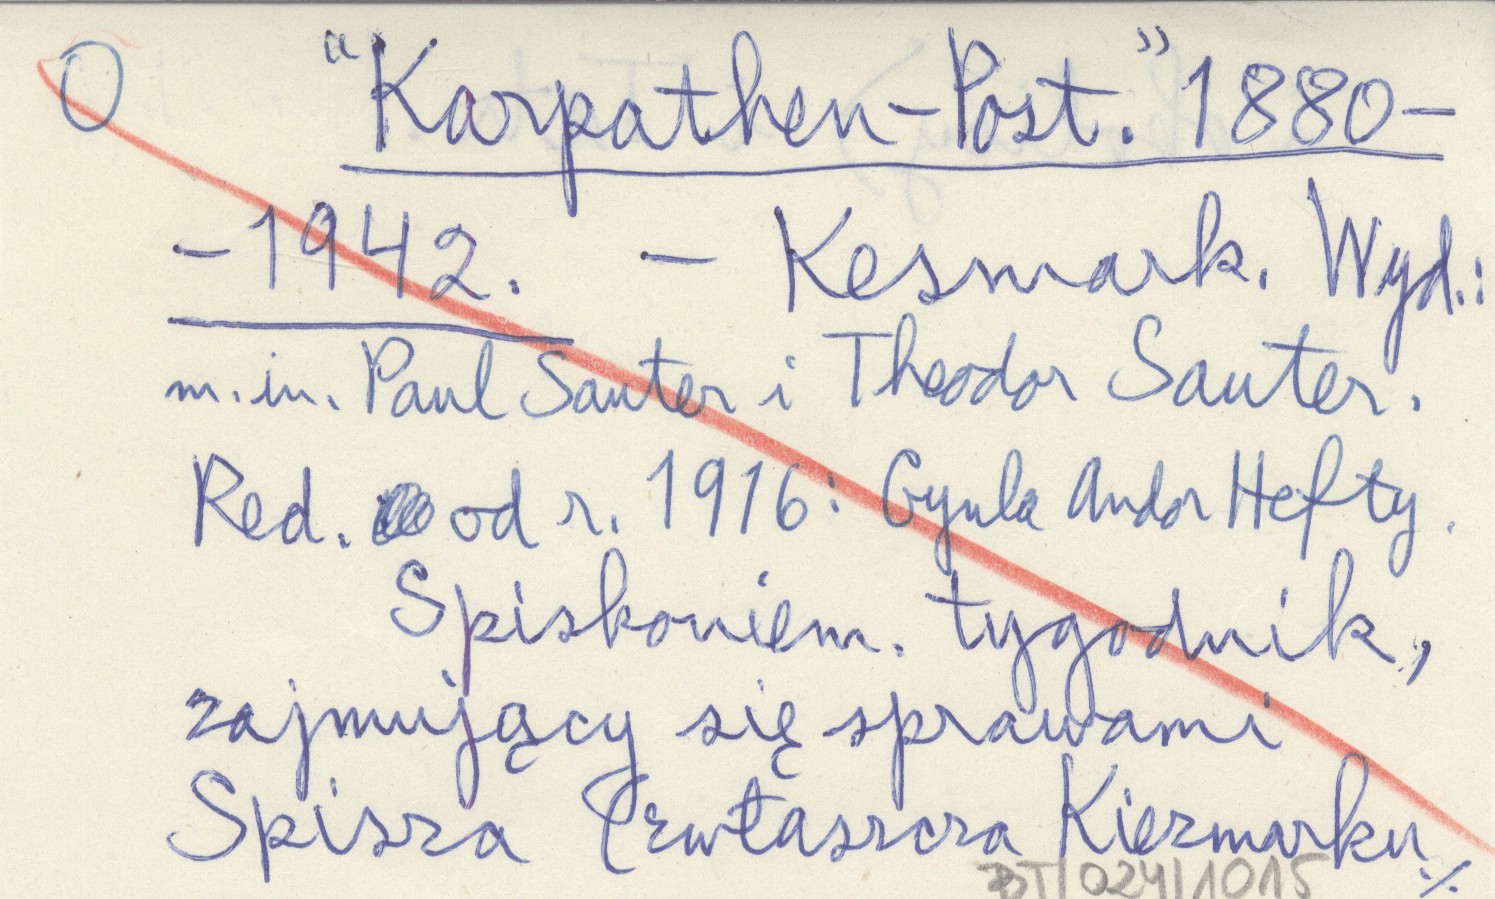 O "Karpathen-Post." 1880-
-1942. - Kesmark. Wyd.:
m.in. Paul Sauter i Theodor Sauter.
Red. od r. 1916: Gyula Andor Hefty.
Spiskoniem. tygodnik,
zajmujący się sprawami
Spisza (zwłaszcza Kiezmarku ./.
BT/024/1015